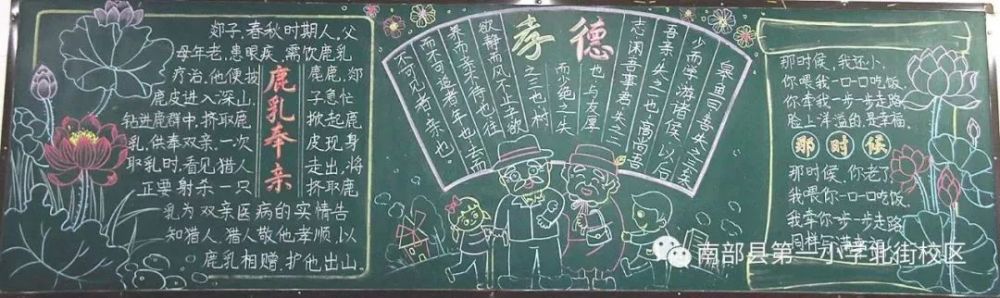 鹿乳奉亲
郯子,春秋时期人,父
母年老,患眼疾,需饮鹿乳
疗治,他便披
鹿皮进入深山,
钻进鹿群中,挤取鹿
乳,供奉双亲,一次
取乳时,看见猎人
正要射杀一只
鹿鹿,郯
子急忙
掀起鹿
皮现身
走出,将
挤取鹿
乳为双亲医病的实情告
知猎人,猎人敬他孝顺,以
鹿乳相赠,护他出山。
孝德
皋鱼曰:吾失之三矣
少而学,游诸侯,以后
吾亲,失之一也;高尚吾
志,闲吾事君,失之二
也;与友厚
而少绝之,失
之三也。树
欲静而风不止,子欲
养而亲不待也。往
而不可追者,年也;去而
不可见者,亲也。
那时候,我还小,
你喂我一口口吃饭,
你牵我一步一步走路
脸上洋溢的是幸福。
那时候
那时候,你老了,
我喂你一口口吃饭,
我牵你一步一步走路
同样
南部县第一小学北街校区